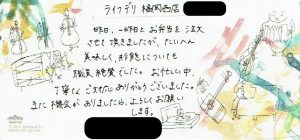 ライフデリ 福岡西店
昨日、一昨日とお弁当を注文
させて頂きましたが、たいへん
美味しく、形態についても
職員絶賛でした。お忙しい中、
丁寧なご対応ありがとうございました。
また機会がありましたら、よろしくお願い
します。